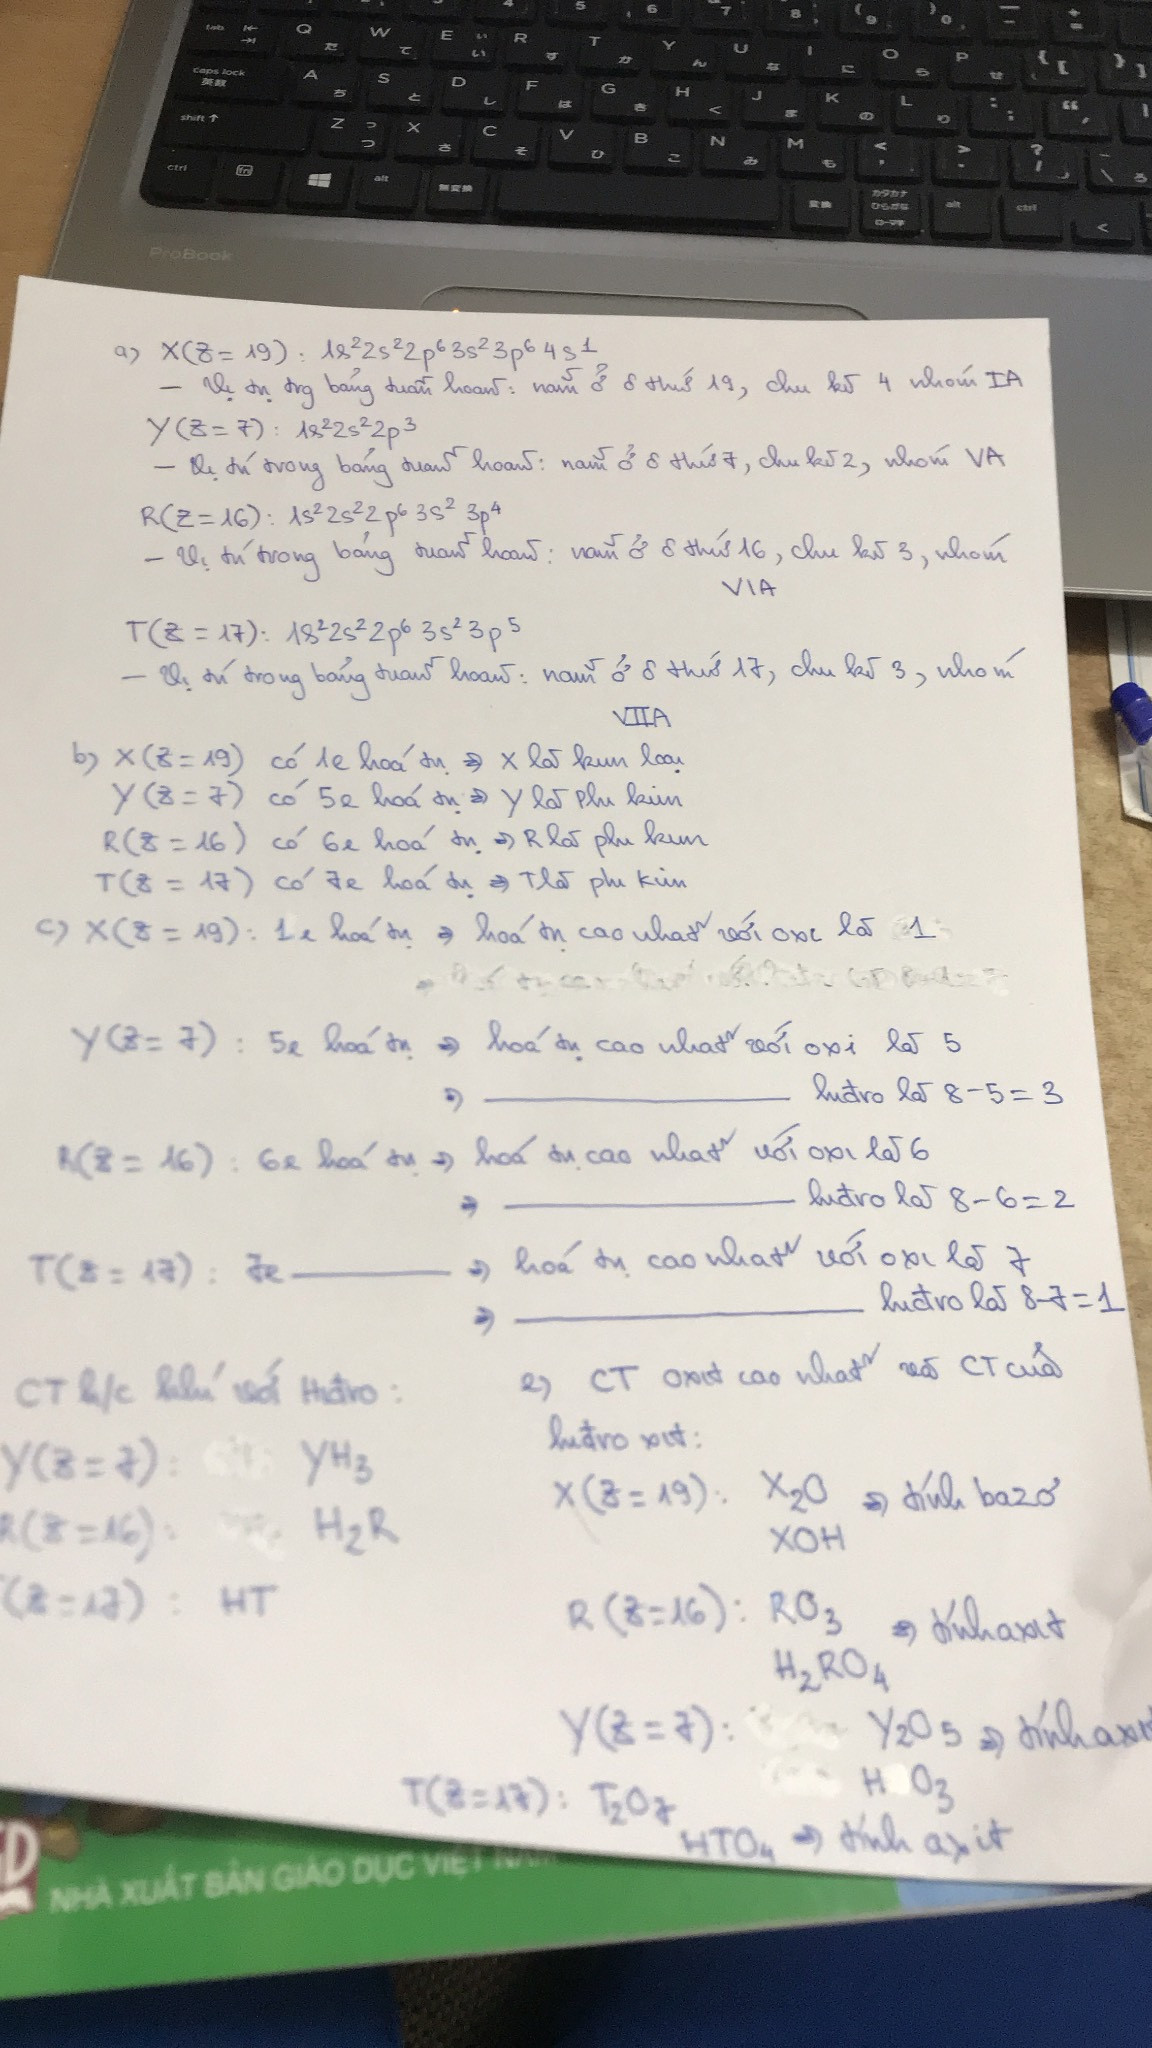 tab Q W E R T Y U I O P
caps lock 英数 A S D F G H J K L
shift Z X C V B N M
ctrl fn alt 無変換 変換 カタカナ ひらがな ローマ字 alt ctrl
ProBook
a) X(Z = 19) : 1s²2s²2p⁶3s²3p⁶4s¹
– Vị trí trg bảng tuần hoàn: nằm ở ô thứ 19, chu kì 4 nhóm IA
Y(Z = 7) : 1s²2s²2p³
– Vị trí trong bảng tuần hoàn: nằm ở ô thứ 7, chu kì 2, nhóm VA
R(Z = 16) : 1s²2s²2p⁶3s²3p⁴
– Vị trí trong bảng tuần hoàn: nằm ở ô thứ 16, chu kì 3, nhóm
VIA
T(Z = 17): 1s²2s²2p⁶3s²3p⁵
– Vị trí trong bảng tuần hoàn: nằm ở ô thứ 17, chu kì 3, nhóm
VIIA
b) X(Z = 19) có 1e hoá trị ⇒ X là kim loại
Y(Z = 7) có 5e hoá trị ⇒ Y là Phi kim
R(Z = 16) có 6e hoá trị ⇒ R là phi kim
T(Z = 17) có 7e hoá trị ⇒ T là phi kim
c) X(Z = 19) : 1e hoá trị ⇒ hoá trị cao nhất với oxi là 1
Y(Z = 7) : 5e hoá trị ⇒ hoá trị cao nhất với oxi là 5
⇒ ——— hiđro là 8 – 5 = 3
R(Z = 16) : 6e hoá trị ⇒ hoá trị cao nhất với oxi là 6
⇒ ——— hiđro là 8 – 6 = 2
T(Z = 17) : 7e ——— ⇒ hoá trị cao nhất với oxi là 7
⇒ ——— hiđro là 8–7 = 1
CT h/c khí với Hiđro :
Y(Z = 7) : YH₃
R(Z = 16) : H₂R
(Z = 17) : HT
e) CT oxit cao nhất và CT của
hiđro xit :
X(Z = 19) : X₂O ⇒ tính bazơ
XOH
R(Z = 16) : RO₃ ⇒ tính axit
H₂RO₄
Y(Z = 7) : Y₂O₅ ⇒ tính axit
H O₃
T(Z = 17) : T₂O₇
HTO₄ ⇒ tính axit
NHÀ XUẤT BẢN GIÁO DỤC VIỆT NAM